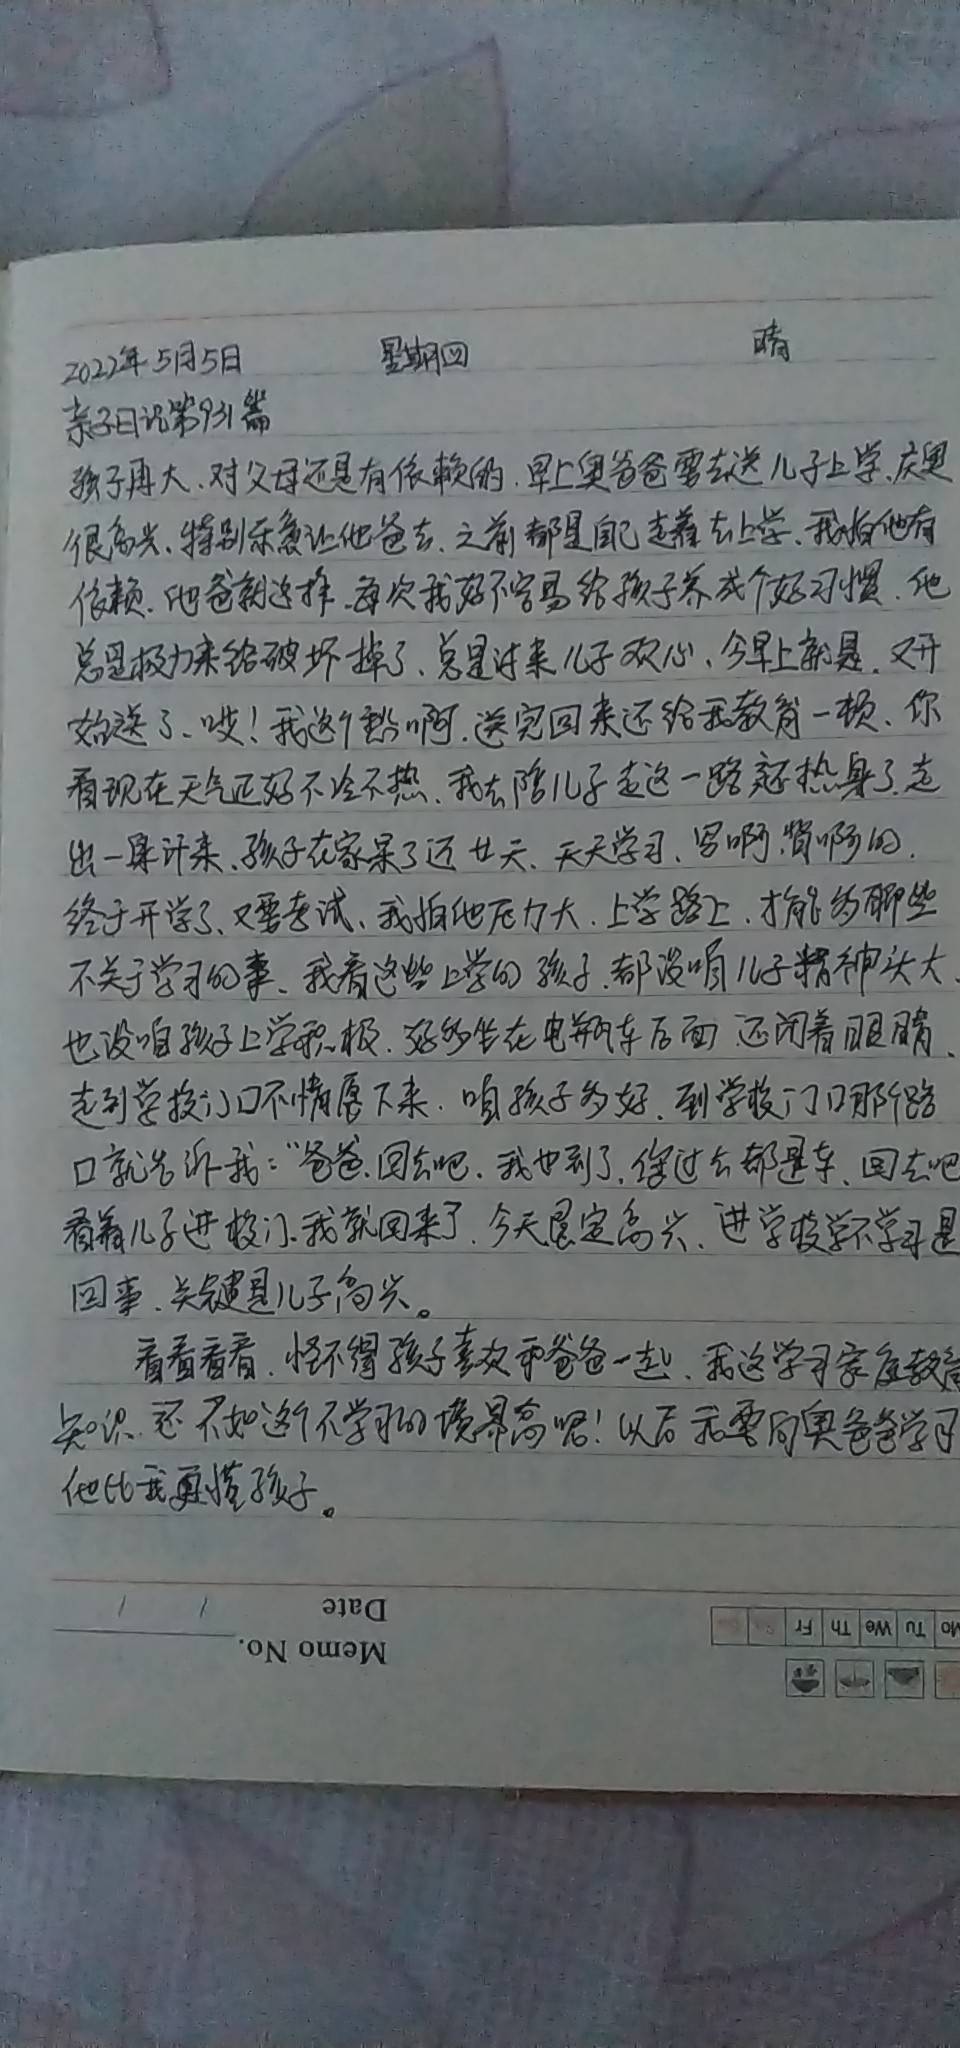 2022年5月5日 星期四 晴
亲子日记第931篇
孩子再大、对父母还是有依赖的、早上奥爸爸要去送儿子上学、庆奥
很高兴、特别乐意让他爸去、之前都是自己走着去上学、我怕他有
依赖、他爸就这样、每次我好不容易给孩子养成个好习惯、他
总是极力来给破坏掉了、总是讨来儿子欢心、今早上就是、又开
始送了、哎！我这个 啊、送完回来还给我教育一顿、你
看现在天气正好不冷不热、我去陪儿子走这一路 热身了、走
出一身汗来、孩子在家呆了近廿天、天天学习、写啊、背啊的、
终于开学了、又要考试、我怕他压力大、上学路上、才能多聊些
不关于学习的事、我看这些上学的孩子、都没咱儿子精神头大、
也没咱孩子上学积极、好多坐在电瓶车后面 还闭着眼睛、
走到学校门口不情愿下来、咱孩子多好、到学校门口那个路
口就告诉我："爸爸、回去吧、我也到了、你过去都是车、回去吧
看着儿子进校门、我就回来了、今天 定高兴、进学校学不学习是
回事、关键是儿子高兴。
看看看看、怪不得孩子喜欢和爸爸一起、我这学习家庭教育
知识、还不如这个不学习的境界高呢！以后 要向奥爸爸学习
他比我更懂孩子。
Memo No.
Date / /
Mo Tu We Th Fr